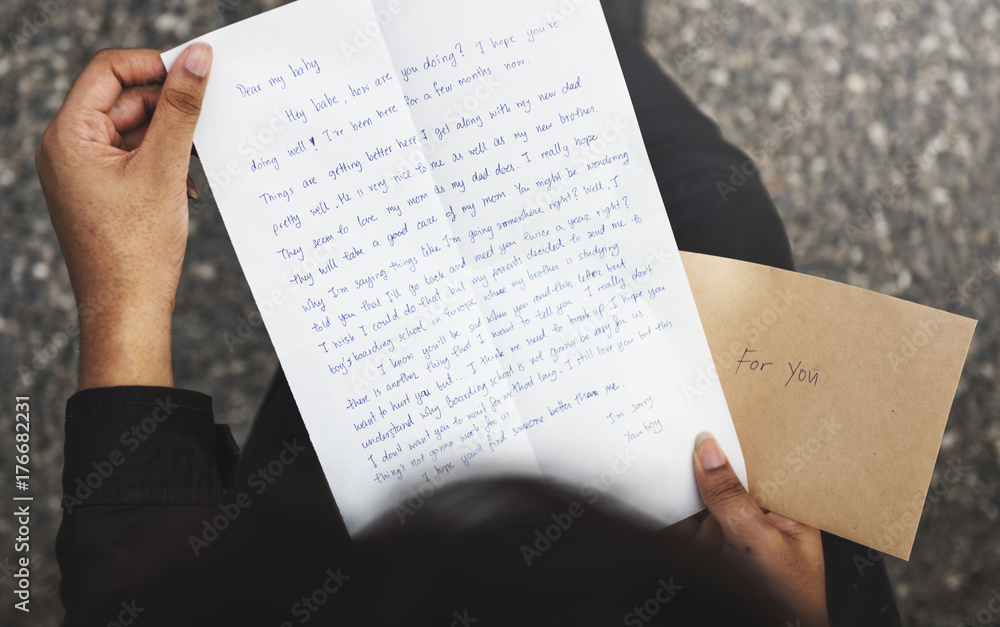 Dear my baby
Hey babe, how are you doing? I hope you're
doing well ♥ I've been here for a few months now.
Things are getting better here. I get along with my new dad
pretty well. He is very nice to me as well as my new brother.
They seem to love my mom as my dad does. I really hope
they will take a good care of my mom. You might be wondering
why I'm saying things like I'm going somewhere right? Well, I
told you that I'll go back and meet you twice a year right?
I wish I could do that but my parents decided to send me to
boy's boarding school in Europe where my brother is studying.
I know you'll be sad when you read this letter but
there is another thing that I want to tell you. I really don't
want to hurt you but... I think we need to break up. I hope you
understand why. Boarding school is not gonna be easy for us
I don't want you to wait for me that long. I still love you but this
thing's not gonna work for us.
I hope you'll find someone better than me.
I'm sorry
Your boy
For You
Adobe Stock | #176682231
Adobe Stock